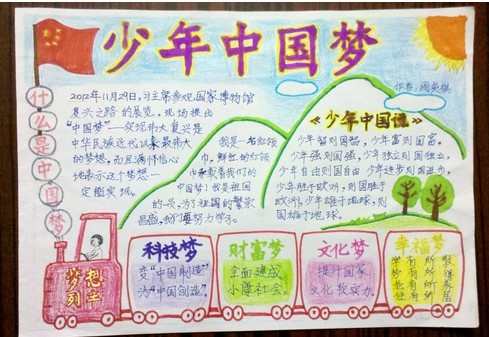 少年中国梦
作者:
什么是中国梦
2012年11月29日,习主席参观国家博物馆
复兴之路的展览,现场提出
"中国梦"——实现伟大复兴是
中华民族近代以来最伟大
的梦想,而且满怀信心
地表示这个梦想一
定能实现。
我是一名红领
巾,鲜红的红领
巾承载着我们的
中国梦!我是祖国
的一员,为了祖国的繁荣
昌盛,我们要努力学习。
《少年中国说》
少年智则国智,少年富则国富,
少年强则国强,少年独立则国独立,
少年自由则国自由,少年进步则国进步,
少年胜于欧洲,则国胜于
欧洲,少年雄于地球,则
国雄于地球。
梦想
列车
科技梦
变"中国制造"
为"中国创造"。
财富梦
全面建成
小康社会。
文化梦
提升国家
文化软实力。
幸福梦
有所
有所
有所
有所